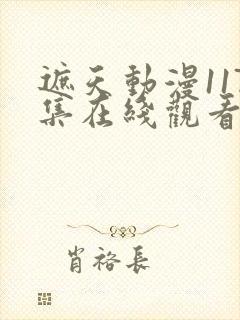 遮天動漫11
集在綫觀看
肖裕長